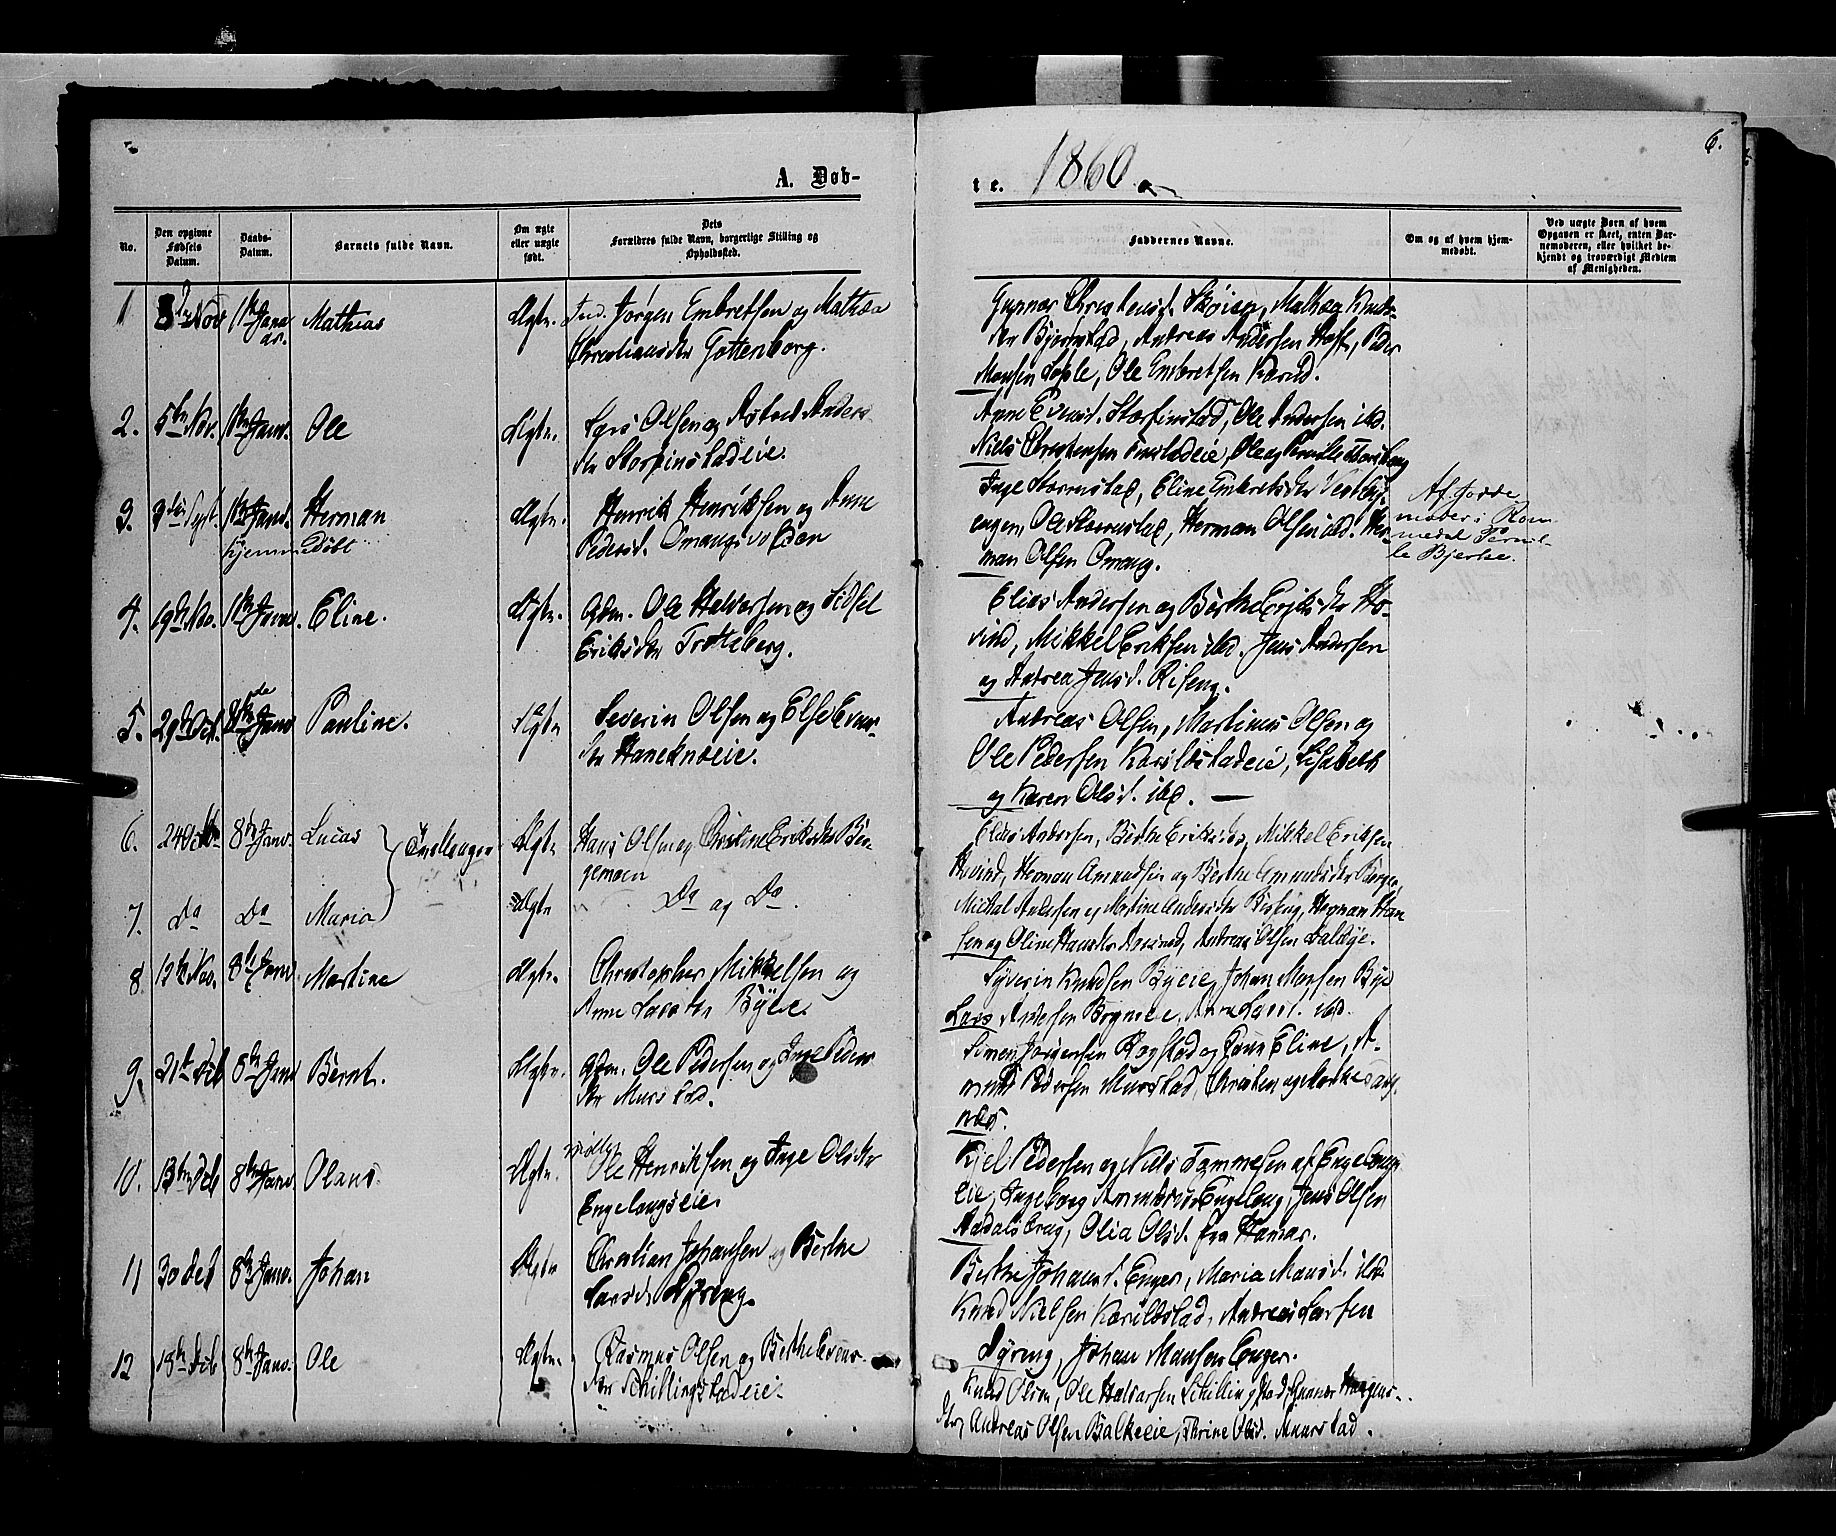 6.
A. Døb-
te. 1860
No.
Den opgivne Fødsels Datum.
Daabs-Datum.
Barnets fulde Navn.
Om ægte eller uægte født.
Dets Forældres fulde Navn, borgerlige Stilling og Opholdssted.
Faddernes Navne.
Om og af hvem hjemmedøbt.
Ved uægte Børn af hvem Opgaven er skeet, enten Barnemoderen, eller hvilket bekjendt og troværdigt Medlem af Menigheden.
1 Nov Mathias Ægte. Ind. Jørgen Embretsen og Mathea
Christiansdtr Gottenborg.
Mathea Knuds-
dtr Bjørnstad, Andreas Andersen Hoft, Peder
Monsen, Ole Embretsen
2. 5te Nov. 1ste Janr. Ole Ægte. Lars Olsen og Anders-
dtr Storfinstadeie.
Anne Evensd. Storfinstad, Ole Andersen ibd.
Niels Christensen Finstadeie, Ole og Pernille
3. 3die Sept. 1ste Janr. Herman Ægte. Henrik Henriksen og Anne
hjemmedøbt Pedersd. Omangsvolden
Inge, Eline Embretsdtr
engen, Ole, Herman Olsen ibd. Her-
man Olsen Omang.
Af Jorde-
moder i Rom-
medal Pernil-
le Bjerke.
4. 19de No. 1ste Janr. Eline. Ægte. Gdm. Ole Halvorsen og Sidsel
Eriksdtr Trotteberg.
Elias Andersen og Berthe Eriksdtr Ho-
vind, Mikkel Eriksen ibd. Jens Andersen
og Andrea Jensd. Riseng.
5. 29de Oct. Janr Pauline. Ægte Severin Olsen og Else Even-
dtr Haneknæeie.
Andreas Olsen, Martinus Olsen og
Ole Pedersen Karilstadeie, Lisabeth
og Karen Olsd. ibd. —
6. 24de 8de Janr. Lucas Ægte Hans Olsen og Christine Eriksdtr Ber-
gemoen
Tvillinger
Elias Andersen, Berthe Eriksdtr, Mikkel Eriksen
Hovind, Herman Amundsen og Berthe Amundsdtr Berger,
7. Do Do Maria Ægte Do og Do.
Michal Andersen og Martine Andersdtr, Herman Han-
sen og Oline Hansdtr, Andreas Olsen Dalbye.
8. 12te Nov. 8de Janr Martine Ægte. Christopher Mikkelsen og
Anne Larsdtr Byeie.
Syverin Knudsen Byeie, Johan Monsen Bye
Lars Andersen, Anne Larsd. ibid.
9. 21de 8de Janr Bernt. Ægte. Gdm. Ole Pedersen og Inge Peders-
dtr Murstad.
Simen Jørgensen Rogstad og Kone Eline, A-
mund Pedersen Murstad, Christian og Marthe Aag-
næs.
10. 13de 8de Janr Olaus. Ægte. Ole Henriksen og Inge Olsdtr
Engelaugseie.
Kjel Pedersen og Niels Tommesen af Engelaugs-
eie, Ingeborg Engelaug, Jens Olsen
Aadalsbrug, Olia Olsd. fra Hamar.
11 30 8de Janr. Johan Ægte Christian Johansen og Berthe
Larsd. Dyreng.
Berthe Johansd. Enger, Maria Monsd. ibd.
Knud Nielsen Karilstad, Andreas Larsen
Dyring, Johan Monsen Enger.
12 18de 8de Janr. Ole Ægte. Rasmus Olsen og Berthe Evens-
dtr Schillingstadeie.
Knud Olsen, Ole Halvorsen Schillingstad, Gunner Haagens-
dtr, Andreas Olsen Balkeeie, Thrine Olsd. Muurstad.